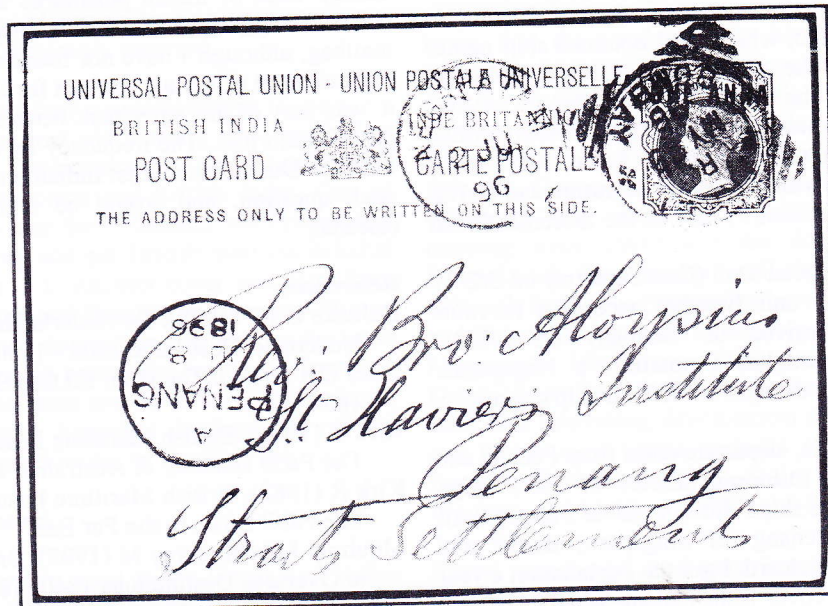 UNIVERSAL POSTAL UNION - UNION POSTALE UNIVERSELLE
BRITISH INDIA
INDE BRITANNIQUE
POST CARD
CARTE POSTALE
THE ADDRESS ONLY TO BE WRITTEN ON THIS SIDE.
ANNA
BOMBAY
JU
96
Rev: Bro: Aloysius
St Xavier's Institute
Penang
Straits Settlements
A
PENANG
JU 8
1896